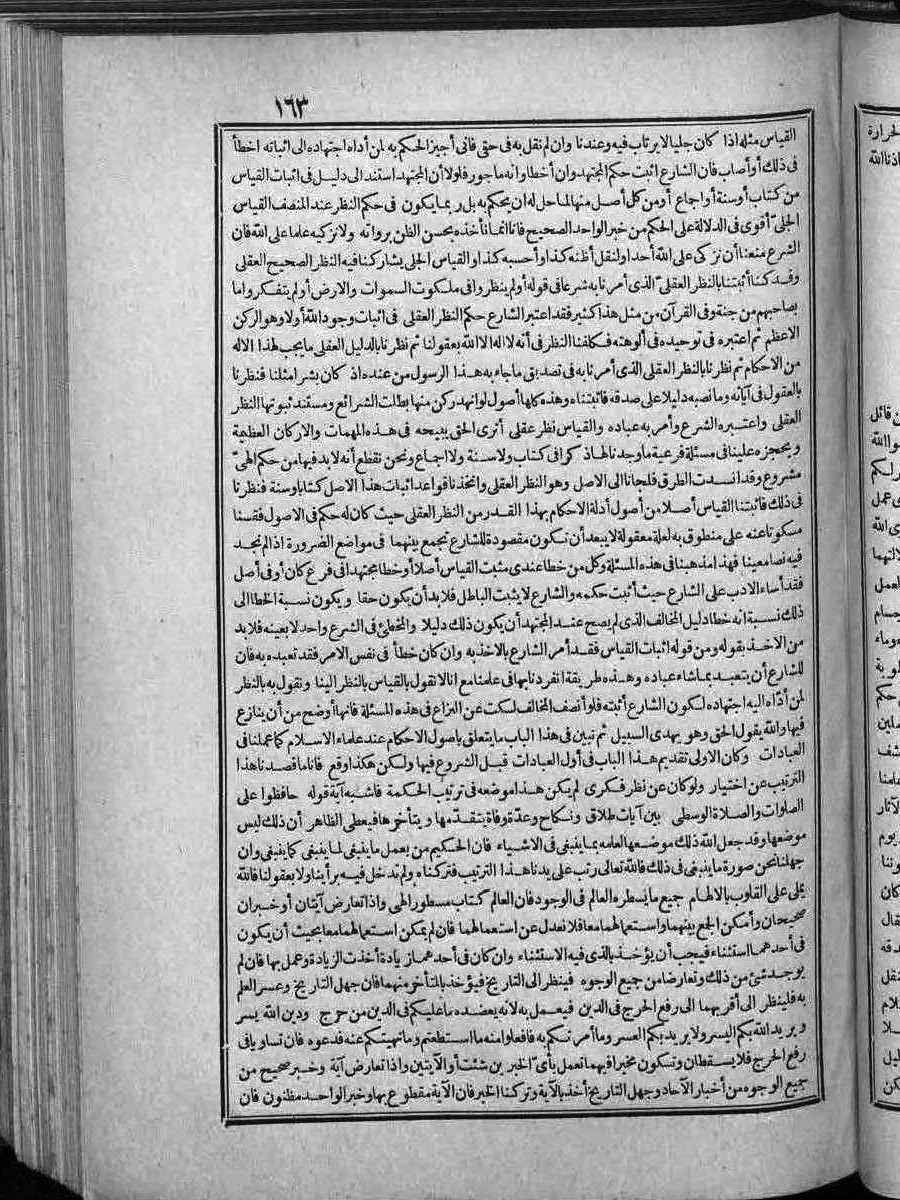 ١٦٣
القياس مثله اذا كان جليا لا يرتاب فيه وعندنا وان لم نقل به في حقي فاني أجيز الحكم به لمن أداه اجتهاده الى اثباته اخطأ
في ذلك أو أصاب فان الشارع اثبت حكم المجتهد وان أخطا وانه ماجور فلولا أن المجتهد استند الى دليل في اثبات القياس
من كتاب أو سنة أو اجماع أو من كل أصل منها لما حل له ان يحكم به بل ربما يكون في حكم النظر عند المنصف القياس
الجلي أقوى في الدلالة على الحكم من خبر الواحد الصحيح فانا انما نأخذه بحسن الظن برواته ولا نزكيه علما على الله فان
الشرع منعنا أن نزكي على الله أحدا ولنقل أظنه كذا وأحسبه كذا والقياس الجلي يشاركنا فيه النظر الصحيح العقلي
وقد كنا أثبتنا بالنظر العقلي الذي أمرنا به شرعا في قوله أولم ينظروا في ملكوت السموات والارض أولم يتفكروا ما
بصاحبهم من جنة وفي القرآن من مثل هذا كثير فقد اعتبر الشارع حكم النظر العقلي في اثبات وجود الله أولا وهو الركن
الاعظم ثم اعتبره في توحيده في ألوهته فكلفنا النظر في أنه لا اله الا الله بعقولنا ثم نظرنا بالدليل العقلي ما يجب لهذا الاله
من الاحكام ثم نظرنا بالنظر العقلي الذي أمرنا به في تصديق ما جاء به هذا الرسول من عنده اذ كان بشرا مثلنا فنظرنا
بالعقول في آياته وما نصبه دليلا على صدقه فاثبتناه وهذه كلها أصول لو انهد ركن منها بطلت الشرائع ومستند ثبوتها النظر
العقلي واعتبره الشرع وأمر به عباده والقياس نظر عقلي أترى الحق يبيحه في هذه المهمات والاركان العظيمة
ويحجزه علينا في مسئلة فرعية ما وجدنا لها ذكرا في كتاب ولا سنة ولا اجماع ونحن نقطع أنه لا بد فيها من حكم الهي
مشروع وقد انسدت الطرق فلجأنا الى الاصل وهو النظر العقلي واتخذنا قواعد اثبات هذا الاصل كتابا وسنة فنظرنا
في ذلك فاثبتنا القياس أصلا من أصول أدلة الاحكام بهذا القدر من النظر العقلي حيث كان له حكم في الاصول فقسنا
مسكوتا عنه على منطوق به لعلة معقولة لا يبعد أن تكون مقصودة للشارع تجمع بينهما في مواضع الضرورة اذا لم نجد
فيه نصا معينا فهذا مذهبنا في هذه المسئلة وكل من خطأ عندي مثبت القياس أصلا أو خطأ مجتهدا في فرع كان أو في أصل
فقد أساء الادب على الشارع حيث أثبت حكمه والشارع لا يثبت الباطل فلا بد أن يكون حقا ويكون نسبة الخطا الى
ذلك نسبة انه خطا دليل المخالف الذي لم يصح عند المجتهد أن يكون ذلك دليلا والمخطئ في الشرع واحد لا بعينه فلا بد
من الاخذ بقوله ومن قوله اثبات القياس فقد أمر الشارع بالاخذ به وان كان خطأ في نفس الامر فقد تعبده به فان
للشارع أن يتعبد بما شاء عباده وهذه طريقة انفردنا بها في علمنا مع انا لا نقول بالقياس بالنظر الينا ونقول به بالنظر
لمن أداه اليه اجتهاده لكون الشارع أثبته فلو أنصف المخالف لسكت عن النزاع في هذه المسئلة فانها أوضح من أن ينازع
فيها والله يقول الحق وهو يهدي السبيل ثم نبين في هذا الباب ما يتعلق باصول الاحكام عند علماء الاسلام كما عملنا في
العبادات وكان الاولى تقديم هذا الباب في أول العبادات قبل الشروع فيها ولكن هكذا وقع فانا ما قصدنا هذا
الترتيب عن اختيار ولو كان عن نظر فكري لم يكن هذا موضعه في ترتيب الحكمة فاشبه آية قوله حافظوا على
الصلوات والصلاة الوسطى بين آيات طلاق ونكاح وعدة وفاة يتقدمها ويتأخرها فيعطي الظاهر أن ذلك ليس
موضعها وقد جعل الله ذلك موضعها لعلمه بما ينبغي في الاشياء فان الحكيم من يعمل ما ينبغي لما ينبغي كما ينبغي وان
جهلنا نحن صورة ما ينبغي في ذلك فالله تعالى رتب على يدنا هذا الترتيب فتركناه ولم ندخل فيه برأينا ولا بعقولنا فالله
يملي على القلوب بالالهام جميع ما يسطره العالم في الوجود فان العالم كتاب مسطور الهي واذا تعارض آيتان أو خبران
صحيحان وأمكن الجمع بينهما واستعمالهما معا فلا نعدل عن استعمالهما فان لم يمكن استعمالهما معا بحيث أن يكون
في أحدهما استثناء فيجب أن يؤخذ بالذي فيه الاستثناء وان كان في أحدهما زيادة أخذت الزيادة وعمل بها فان لم
يوجد شئ من ذلك وتعارضا من جميع الوجوه فينظر الى التاريخ فيؤخذ بالمتأخر منهما فان جهل التاريخ وعسر العلم
به فلينظر الى أقربهما الى رفع الحرج في الدين فيعمل به لانه يعضده ما عليكم في الدين من حرج ودين الله يسر
ويريد الله بكم اليسر ولا يريد بكم العسر وما أمرتكم به فافعلوا منه ما استطعتم وما نهيتكم عنه فدعوه فان تساويا في
رفع الحرج فلا يسقطان وتكون مخيرا فيهما تعمل بأي الخبرين شئت أو الآيتين واذا تعارض آية وخبر صحيح من
جميع الوجوه من أخبار الآحاد وجهل التاريخ أخذ بالآية وتركنا الخبر فان الآية مقطوع بها وخبر الواحد مظنون فان